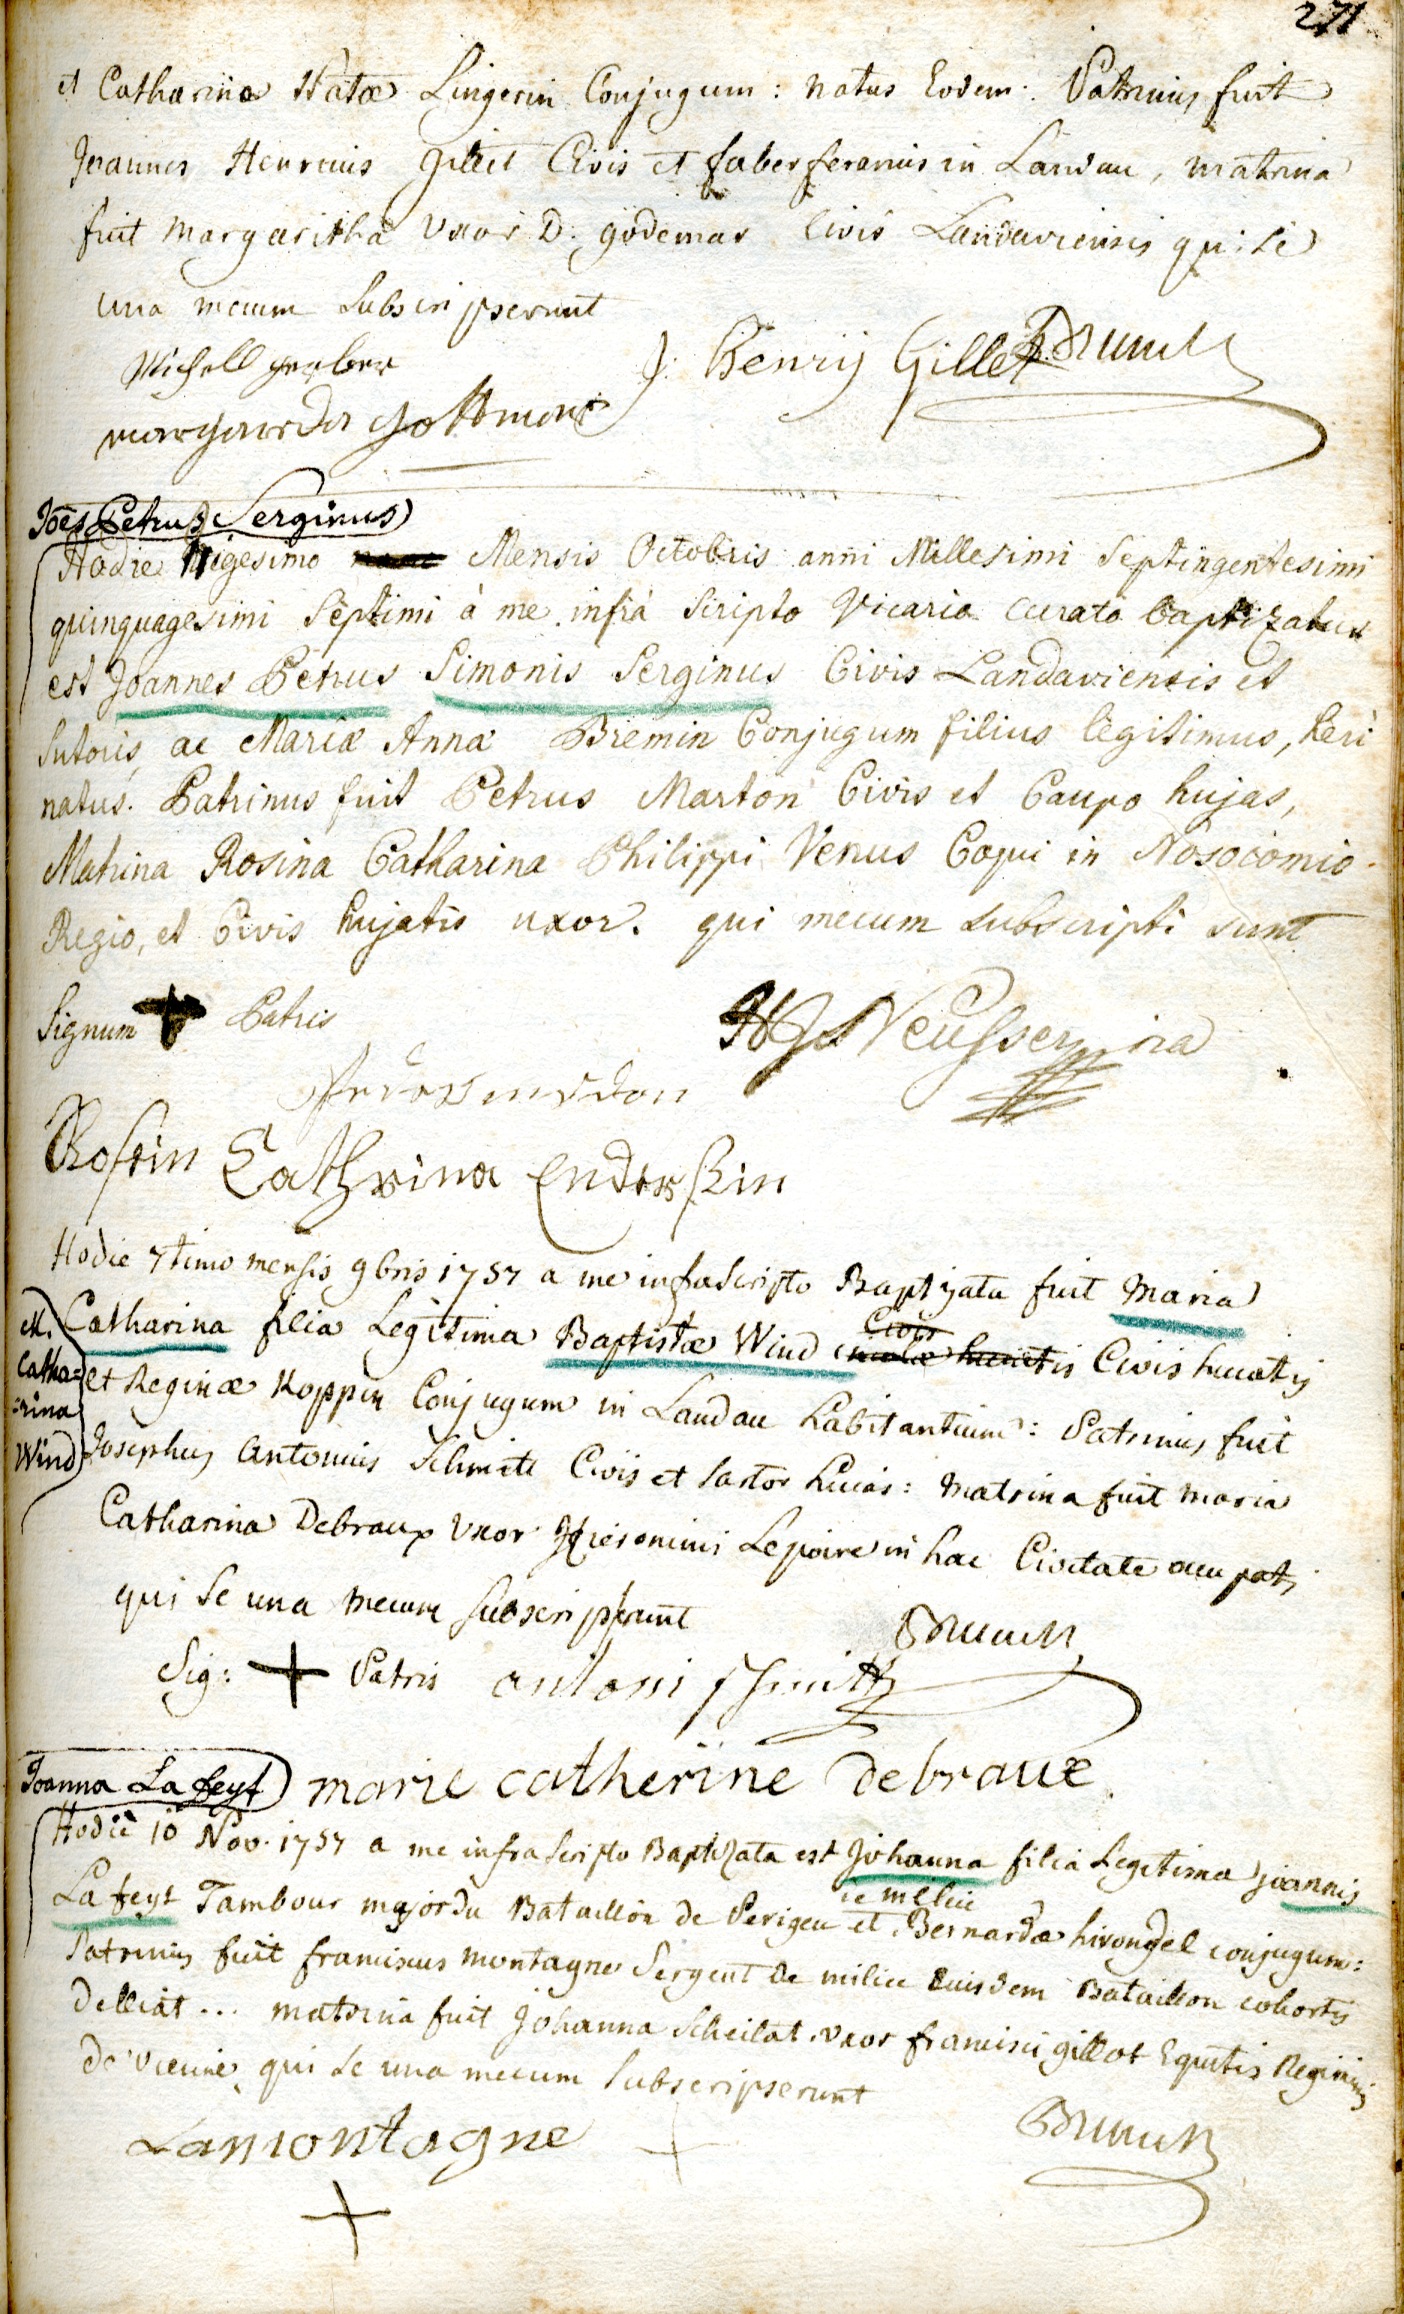 271
et Catharinæ Natæ Lingerin Conjugum : natus Eodem : Patrinus fuit
Joannes Henricus Gillet Civis et faber ferarius in Landau, matrina
fuit Margaritha Uxor D. godemar Civis Landaviensis qui se
una mecum subscripserunt
Michell gerber
J. Henrij Gillet
margareda gottmane
Joës Petrus Serginus
Hodie Vigesimo Mensis Octobris anni Millesimi Septingentesimi
quinquagesimi Septimi à me infrà scripto Vicario Curato baptizatus
est Joannes Petrus Simonis Serginus Civis Landaviensis et
Sutoris, ac Mariæ Annæ Bremin Conjugum filius legitimus, heri
natus. Patrinus fuit Petrus Marton Civis et Caupo hujas,
Matrina Rosina Catharina Philippi Venus Coqui in Nosocomio
Regio, et Civis hujatis uxor. qui mecum subscripti sunt
Signum + Patris
Neusser
Rosin Cathrina Enderssin
Hodie 7timo mensis 9bris 1757 a me infrascripto Baptizata fuit Maria
M. Catharina Wind
Catharina filia Legitima Baptistæ Wind Civis huiatis
et Reginæ Koppin Conjugum in Landau habitantium : Patrinus fuit
Josephus Antonius Schmitt Civis et sartor huias : Matrina fuit Maria
Catharina Debraux Uxor Hieronimi Lepoire in hac Civitate occupati
qui se una mecum subscripserunt
Sig: + Patris antoni schmitt
marie catherine debraux
Joanna La feyt
Hodie 10 Nov. 1757 a me infrascripto Baptizata est Johanna filia Legitima joannis
de milice
La feyt Tambour major du Bataillon de Perigeu et Bernardæ hirondel conjugum :
Patrinus fuit franciscus montagne Sergent de milice Euisdem Bataillon cohortis
Delliat ... matrina fuit Johanna Scheilat uxor francisci gillot Equitis Regiminis
de vienne qui se una mecum subscripserunt
Lamontagne +
+